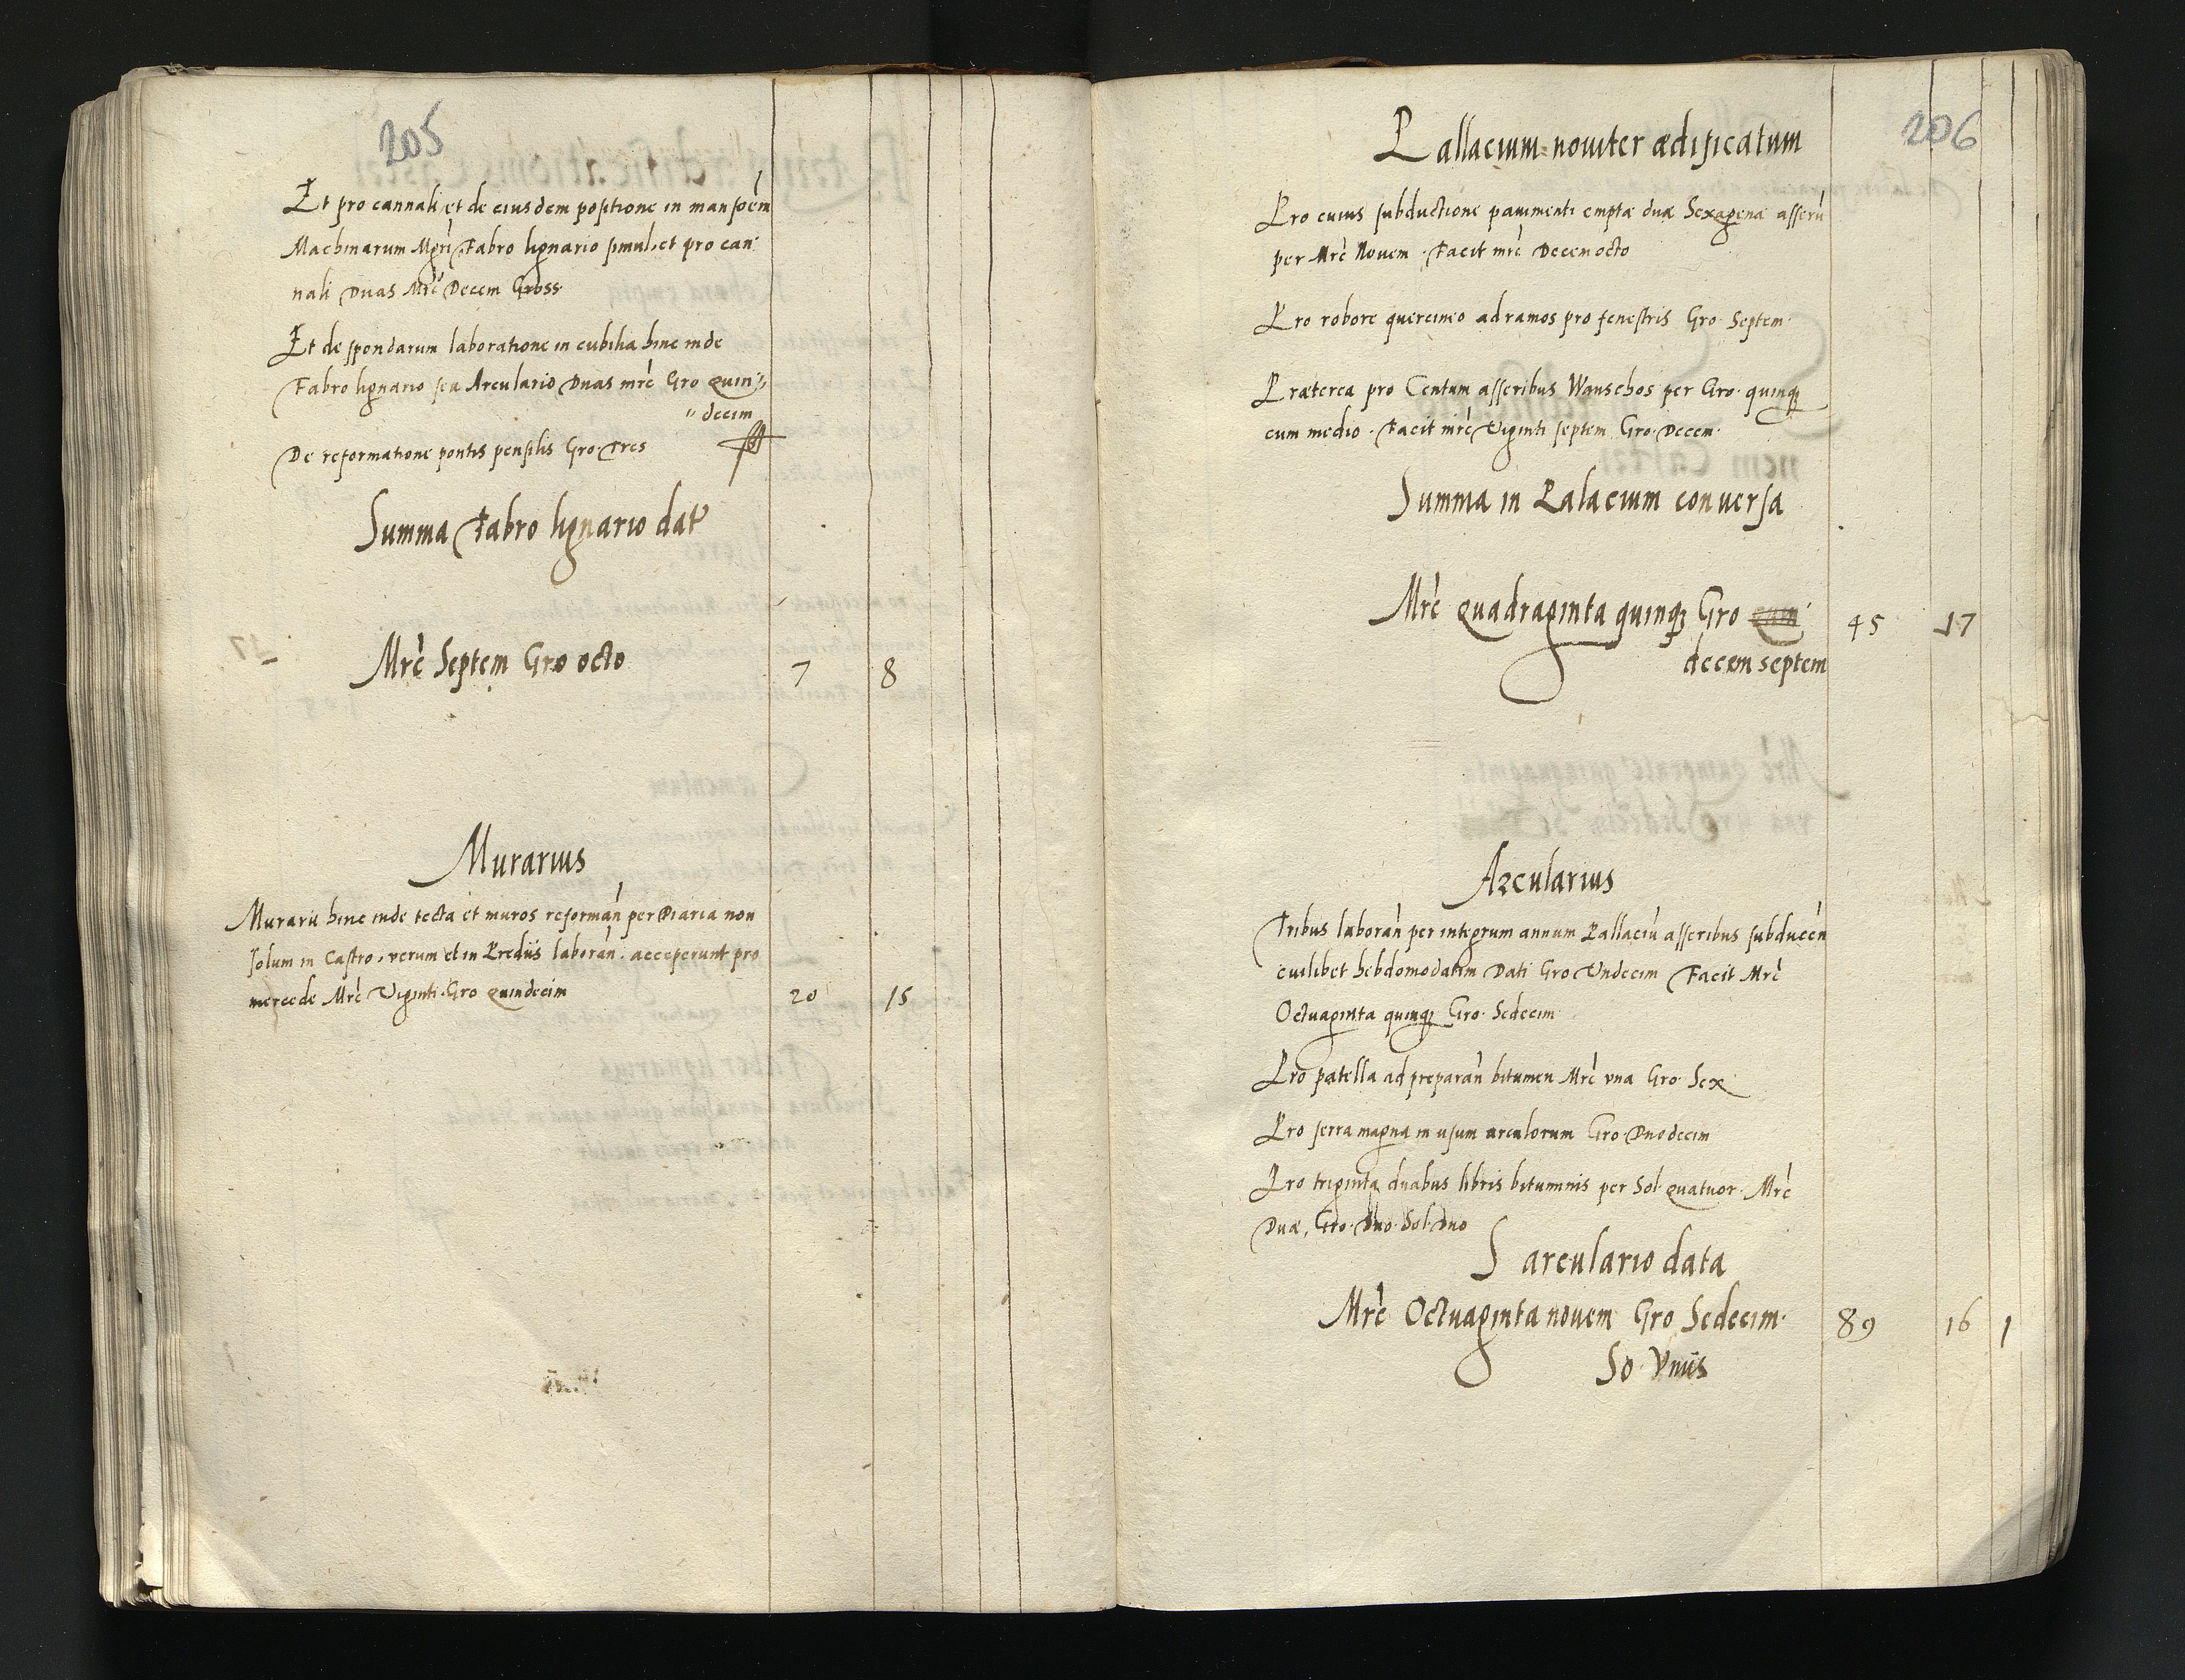 205
Et pro cannali et de eiusdem positione in mansoēm
Machinarum Mgrī Fabro lignario simul, et pro can:
nali Duas Mrc Decem Gross
Et de spondarum laboratione in cubilia hinc inde
Fabro lignario seu Arculario Duas mrc Gro quin„
„decim
De reformatione pontis pensilis Gro. Tres
Summa Fabro lignario dat
Mrc Septem Gro octo 7 8
Murarius
Murarii hinc inde tecta et muros reformań per Diaria non
solum in Castro, verum et in Prediis laborań. acceperunt pro
mercede Mrc Viginti. Gro quindecim 20 15
206
Pallacium noviter ædificatum
Pro cuius subductione pavimenti emptæ duæ Sexagenæ asserū
per Mrc Novem. Facit mrc Decem octo
Pro robore querc​ineo ad ramos pro fenestris Gro. Septem.
Præterea pro Centum asseribus Wanschos per Gro. quinq
cum medio. Facit mrc Viginti septem Gro. Decem.
Summa in Palacium conversa
Mrc quadraginta quinq Gro quin
decem septem 45 17
Arcularius
Tribus laborań per integrum annum Pallaciū asseribus subduceń
cuilibet hebdomodatim Dati Gro Undecim Facit Mrc
Octuaginta quinq Gro. Sedecim
Pro patella ad preparań bitumen Mrc vna Gro. Sex
Pro serra magna in usum arculorum Gro. Duodecim
Pro triginta duabus libris bituminis per Sol. quatuor. Mrc
Duæ, Gro. Duo. Sol. Duo
S arculario data
Mrc Octuaginta novem Gro Sedecim. 89 16 1
So. Vnus